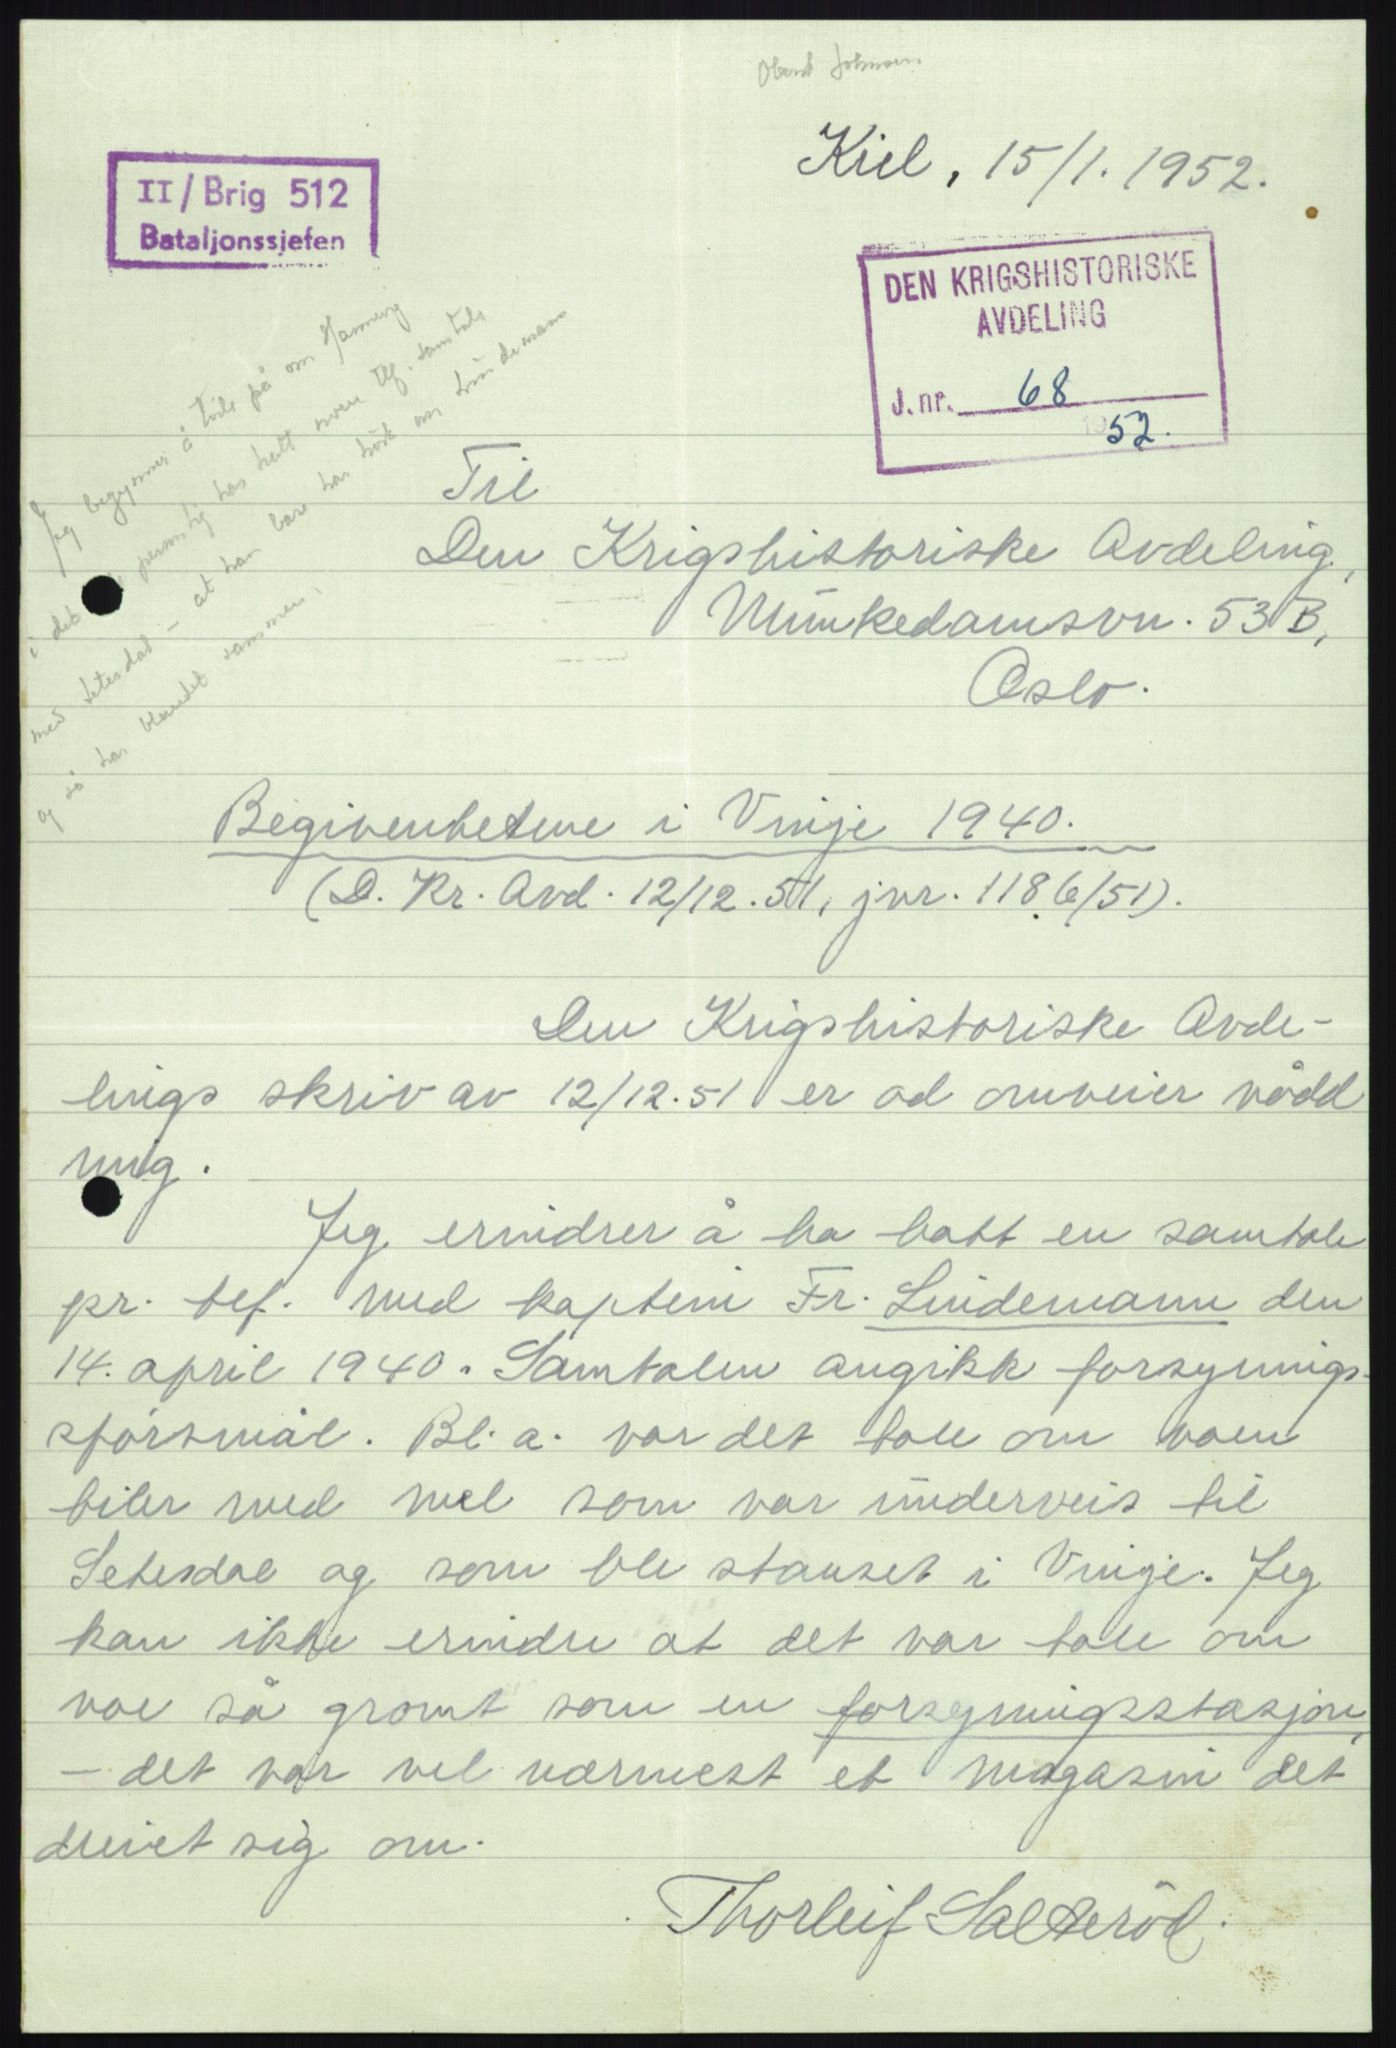 Kiel, 15/1. 1952.
II/Brig 512
Bataljonssjefen
DEN KRIGSHISTORISKE
AVDELING
J. nr. 68
1952.
Jeg begynner å tvile på om
i det personlig har hatt noen tlf. samtale
med Setesdal – at han bare har hørt om Lindemann
og så har blandet sammen.
Til
Den Krigshistoriske Avdeling,
Munkedamsvn. 53 B,
Oslo.
Begivenhetene i Vinje 1940.
(D. Kr. Avd. 12/12. 51, jnr. 1186/51).
Den Krigshistoriske Avde-
lings skriv av 12/12. 51 er ad omveier nådd
mig.
Jeg erindrer å ha hatt en samtale
pr. tlf. med kaptein Fr. Lindemann den
14. april 1940. Samtalen angikk forsynings-
spörsmål. Bl. a. var det tale om noen
biler med mel som var underveis til
Setesdal og som ble stanset i Vinje. Jeg
kan ikke erindre at det var tale om
noe så gromt som en forsyningsstasjon,
– det var vel nærmest et magasin det
dreiet sig om.
Thorleif Salteröd.